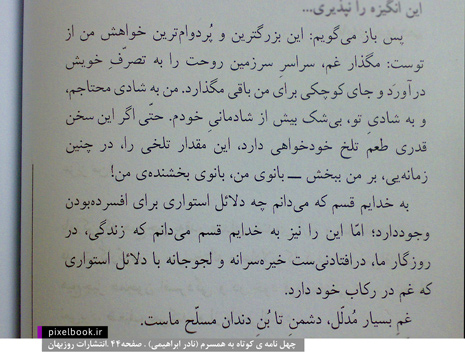 این انگیزه را نپذیری...
پس باز می‌گویم: این بزرگترین و پُردوام‌ترین خواهش من از
توست: مگذار غم، سراسرِ سرزمین روحت را به تصرّفِ خویش
درآورَد و جای کوچکی برای من باقی مگذارد. من به شادی محتاجم،
و به شادیِ تو، بی‌شک بیش از شادمانی خودم. حتّی اگر این سخن
قدری طعم تلخ خودخواهی دارد، این مقدار تلخی را، در چنین
زمانه‌یی، بر من ببخش ــ بانوی من، بانوی بخشنده‌ی من!
به خدایم قسم که می‌دانم چه دلائل استواری برای افسرده‌بودن
وجوددارد؛ امّا این را نیز به خدایم قسم می‌دانم که زندگی، در
روزگار ما، درافتادنی‌ست خیره‌سرانه و لجوجانه با دلائل استواری
که غم در رکاب خود دارد.
غمِ بسیار مُدلّل، دشمنِ تا بُنِ دندان مسلّح ماست.
pixelbook.ir
چهل نامه ی کوتاه به همسرم (نادر ابراهیمی) . صفحه۴۴ .انتشارات روزبهان